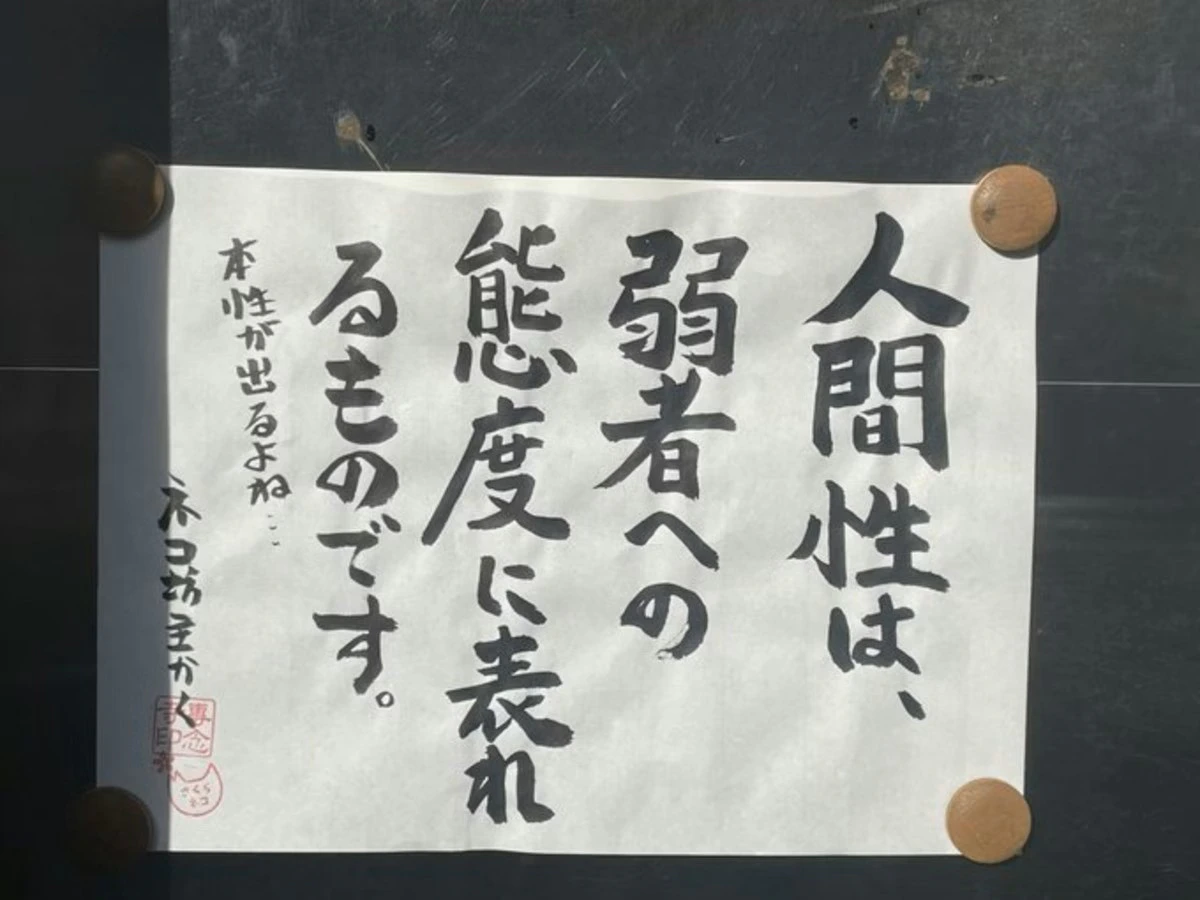 人間性は、
弱者への
態度に表れ
るものです。
本性が出るよね…
ネコ坊主かく
専念
寺印
さくら
ネコ